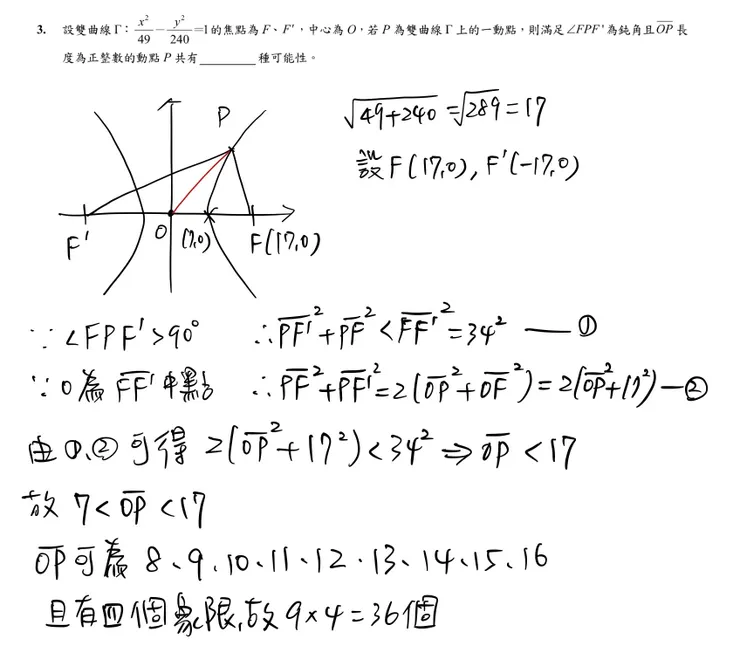 3. 設雙曲線Γ：x²/49－y²/240=1的焦點為F、F'，中心為O，若P為雙曲線Γ上的一動點，則滿足∠FPF'為鈍角且\overline{OP}長
度為正整數的動點P共有________種可能性。
√(49+240)=√289=17
設F(17,0), F'(-17,0)
P
F' O (7,0) F(17,0)
∵∠FPF'>90° ∴\overline{PF'}²+\overline{PF}²<\overline{FF'}²=34² — ①
∵O為\overline{FF'}中點 ∴\overline{PF}²+\overline{PF'}²=2(\overline{OP}²+\overline{OF}²)=2(\overline{OP}²+17²) — ②
由①、②可得 2(\overline{OP}²+17²)<34² ⇒ \overline{OP}<17
故 7<\overline{OP}<17
\overline{OP}可為 8、9、10、11、12、13、14、15、16
且有四個象限,故9×4=36個